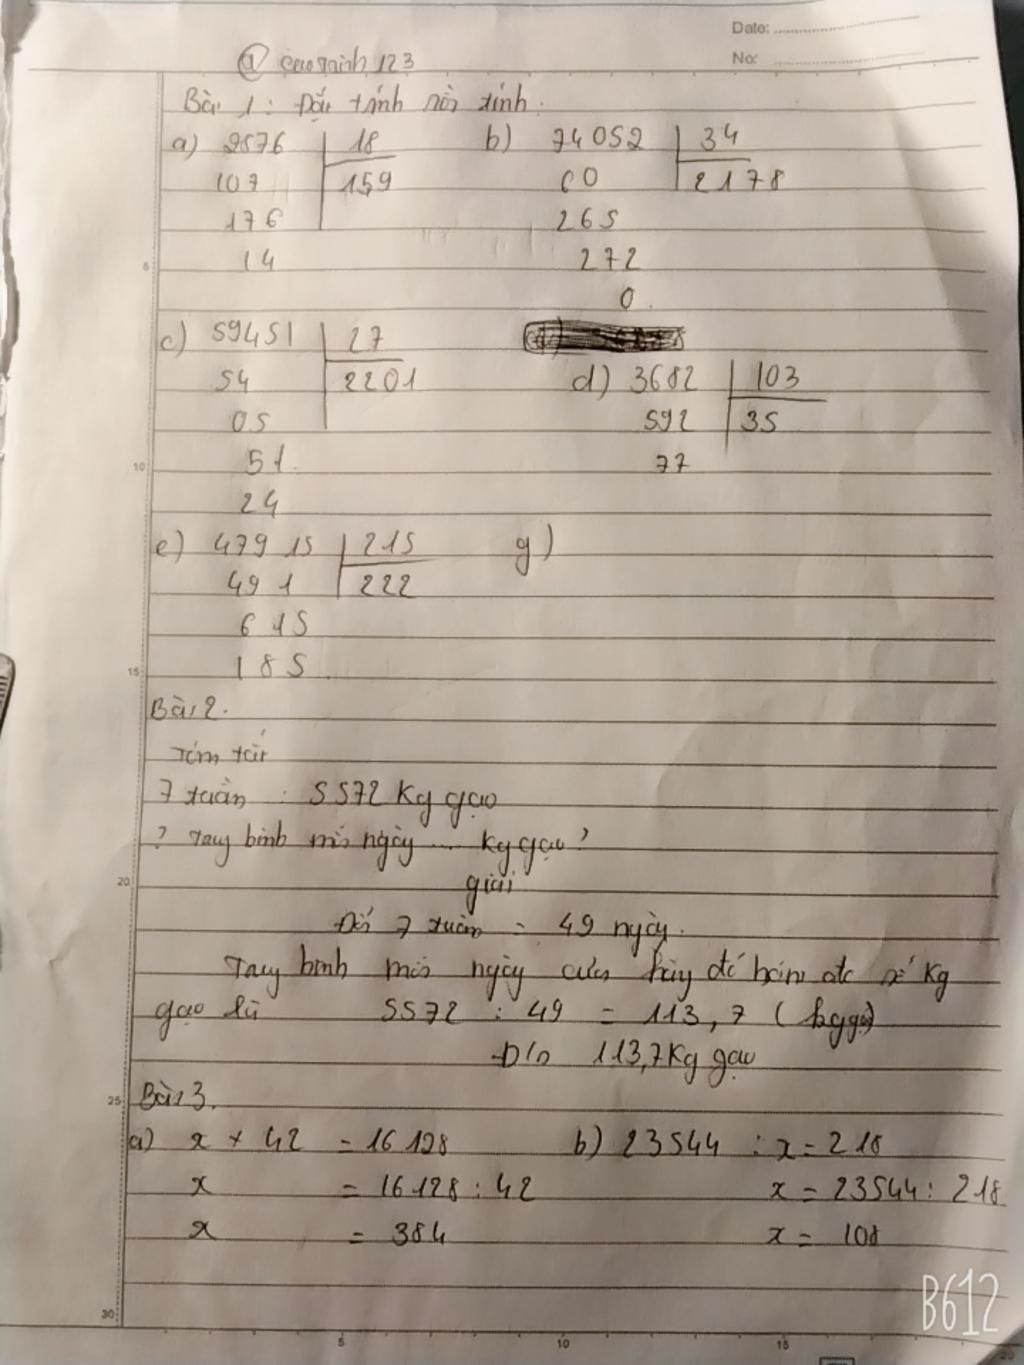 Date:
No:
@ caominh 123
Bài 1: Đặt tính rồi tính.
a) 2876 18 b) 74052 34
107 159 60 2178
176 265
14 272
0
c) 59451 27
54 2201 d) 3682 103
05 592 35
51 77
24
e) 47915 215 g)
491 222
615
185
Bài 2.
Tóm tắt
7 tuần : 5572 Kg gạo
? Tung bình mỗi ngày ... kg gạo?
giải
Đổi 7 tuần = 49 ngày.
Tung bình mỗi ngày cửa hàng đó bán đc số Kg
gạo là 5572 : 49 = 113,7 (kg gạo)
Đ/s 113,7Kg gạo
Bài 3.
a) x × 42 = 16128 b) 23544 : x = 218
x = 16128 : 42 x = 23544 : 218
x = 384 x = 108
B612
5
10
15
20
25
30
5 10 15 20